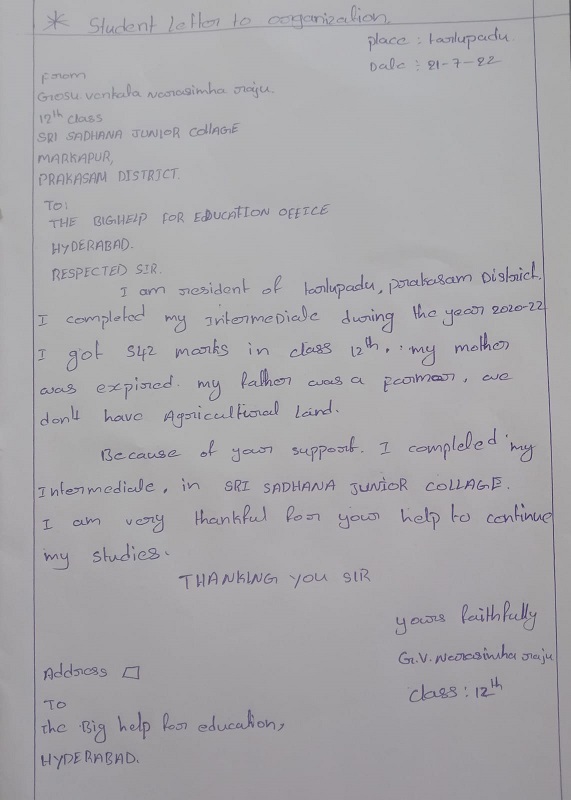 * Student letter to organization.
place : tarlupadu.
Date : 21-7-22
From
Gosu. venkata Narasimha raju.
12th class
SRI SADHANA JUNIOR COllAGE
MARKAPUR,
PRAKASAM DISTRICT.
To:
THE BIGHELP FOR EDUCATION OFFICE
HYDERABAD.
RESPECTED SIR.
I am resident of tarlupadu, prakasam District.
I completed my Intermediate during the year 2020-22
I got 542 marks in class 12th. my mother
was expired. my father was a farmar, we
don't have Agricultural Land.
Because of your support. I completed my
Intermediate, in SRI SADHANA JUNIOR COLLAGE.
I am very thankful for your help to continue
my studies.
THANKING YOU SIR
yours faithfully
G.V. Narasimha raju
class : 12th
Address
To
the Big help for education,
HYDERABAD.